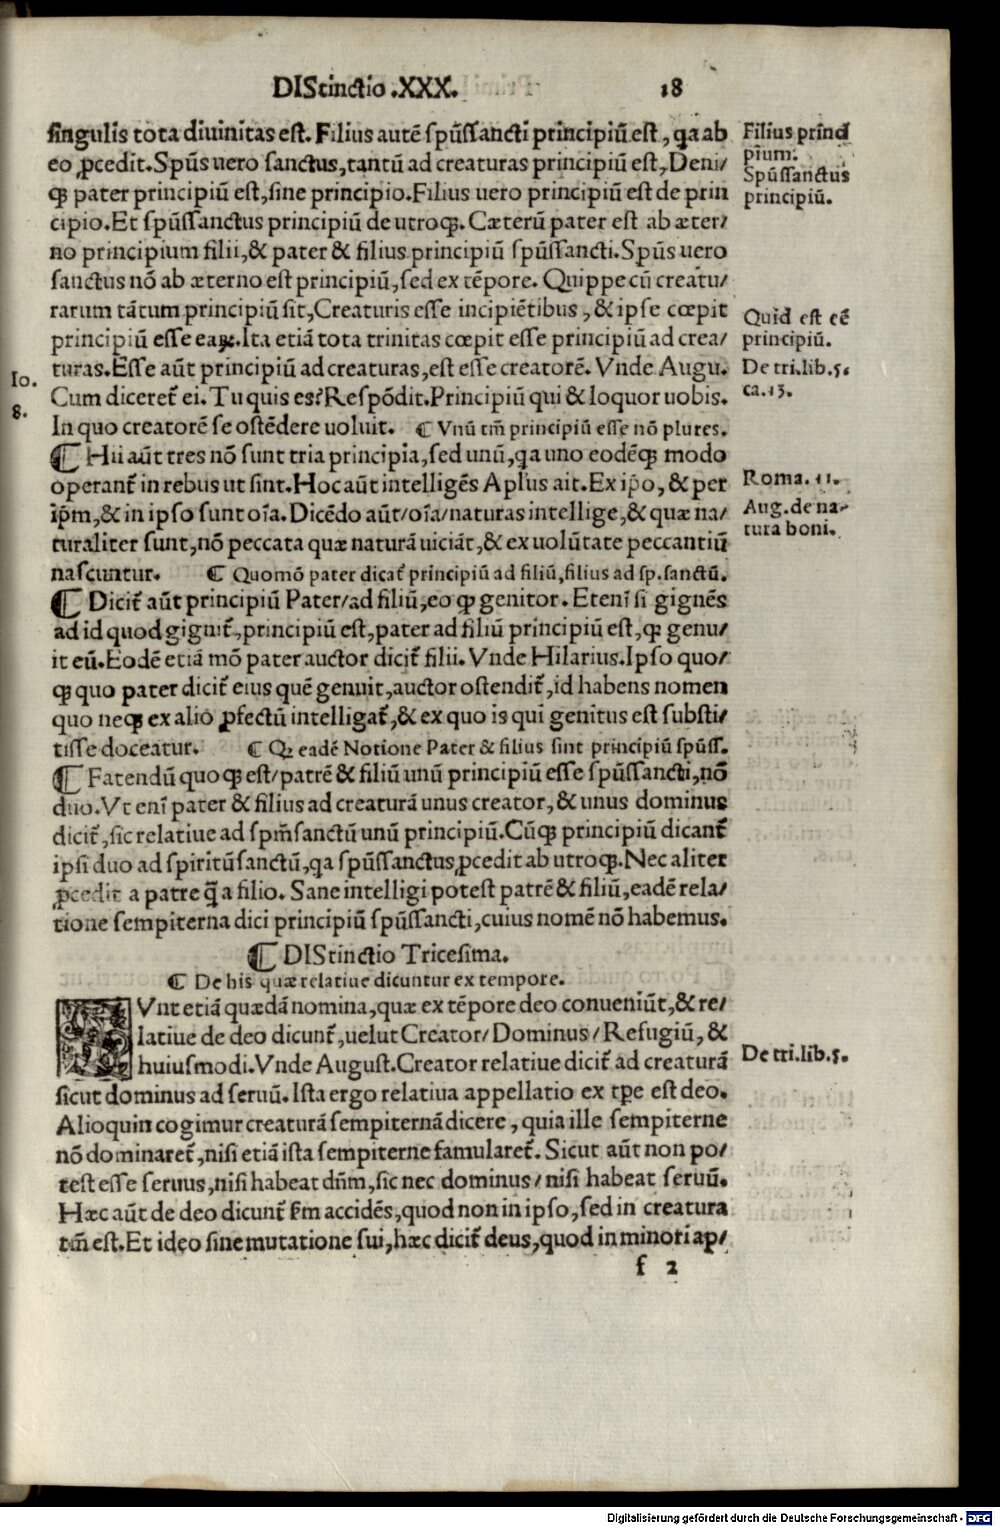 DIStinctio .XXX. 18
singulis tota diuinitas est. Filius autē spūssancti principiū est, qa ab
eo ꝓcedit. Spūs uero sanctus, tantū ad creaturas principiū est, Deni/
qꝫ pater principiū est, sine principio. Filius uero principiū est de prin
cipio. Et spūssanctus principiū de utroqꝫ. Cæterū pater est ab æter/
no principium filii, & pater & filius principiū spūssancti. Spūs uero
sanctus nō ab æterno est principiū, sed ex tēpore. Quippe cū creatu/
rarum tātum principiū sit, Creaturis esse incipiētibus, & ipse cœpit
principiū esse eaꝝ. Ita etiā tota trinitas cœpit esse principiū ad crea/
turas. Esse aūt principiū ad creaturas, est esse creatorē. Vnde Augu.
Cum diceret̄ ei. Tu quis es? Respōdit. Principiū qui & loquor uobis.
In quo creatorē se ostēdere uoluit. ¶ Vnū tm̄ principiū esse nō plures.
¶ Hii aūt tres nō sunt tria principia, sed unū, qa uno eodēqꝫ modo
operant̄ in rebus ut sint. Hoc aūt intelligēs Apl'us ait. Ex ip̄o, & per
ip̄m, & in ipso sunt oīa. Dicēdo aūt/oīa/naturas intellige, & quæ na/
turaliter sunt, nō peccata quæ naturā uiciāt, & ex uolūtate peccantiū
nascuntur. ¶ Quomō pater dicat̄ principiū ad filiū, filius ad sp. sanctū.
¶ Dicit̄ aūt principiū Pater/ad filiū, eo qꝙ genitor. Etenī si gignēs
ad id quod gignit̄, principiū est, pater ad filiū principiū est, qꝙ genu/
it eū. Eodē etiā mō pater auctor dicit̄ filii. Vnde Hilarius. Ipso quo/
qꝫ quo pater dicit̄ eius quē genuit, auctor ostendit̄, id habens nomen
quo neqꝫ ex alio ꝓfectū intelligat̄, & ex quo is qui genitus est substi/
tisse doceatur. ¶ Qꝙ eadē Notione Pater & filius sint principiū spūss.
¶ Fatendū quoqꝫ est/patrē & filiū unū principiū esse spūssancti, nō
duo. Vt enī pater & filius ad creaturā unus creator, & unus dominus
dicit̄, sic relatiue ad spm̄sanctū unū principiū. Cūqꝫ principiū dicant̄
ipsi duo ad spiritūsanctū, qa spūssanctus ꝓcedit ab utroqꝫ. Nec aliter
ꝓcedit a patre q̄ a filio. Sane intelligi potest patrē & filiū, eadē rela/
tione sempiterna dici principiū spūssancti, cuius nomē nō habemus.
¶ DIStinctio Tricesima.
¶ De his quæ relatiue dicuntur ex tempore.
SVnt etiā quædā nomina, quæ ex tēpore deo conueniūt, & re/
latiue de deo dicunt̄, uelut Creator/Dominus/Refugiū, &
huiusmodi. Vnde August. Creator relatiue dicit̄ ad creaturā
sicut dominus ad seruū. Ista ergo relatiua appellatio ex tpe est deo.
Alioquin cogimur creaturā sempiternā dicere, quia ille sempiterne
nō dominaret̄, nisi etiā ista sempiterne famularet̄. Sicut aūt non po/
test esse seruus, nisi habeat dn̄m, sic nec dominus/nisi habeat seruū.
Hæc aūt de deo dicunt̄ s̄m accidēs, quod non in ipso, sed in creatura
tm̄ est. Et ideo sine mutatione sui, hæc dicit̄ deus, quod in minori ap/
f 2
Filius princi
pium.
Spūssanctus
principiū.
Quid est eē
principiū.
De tri.lib.5.
ca.13.
Io.
8.
Roma.11.
Aug. de na-
tura boni.
De tri.lib.5.
Digitalisierung gefördert durch die Deutsche Forschungsgemeinschaft - DFG